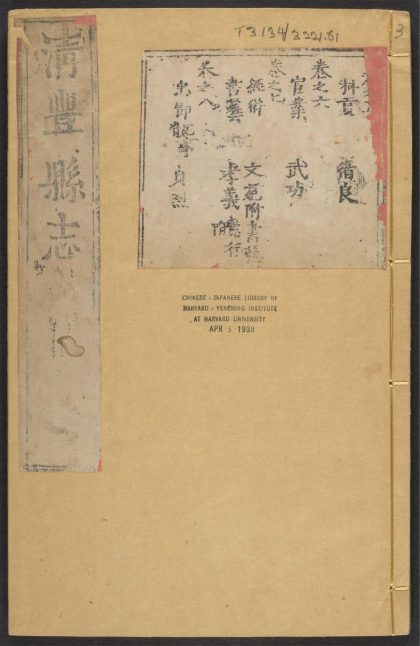 T3134/3221.81
3
清豐縣志
科貢　循良
卷之六
官業　武功
卷之七
經術　文苑附書
書藝　孝義
卷之八
忠節　貞烈
CHINESE - JAPANESE LIBRARY OF
HARVARD - YENCHING INSTITUTE
AT HARVARD UNIVERSITY
APR 5 1938